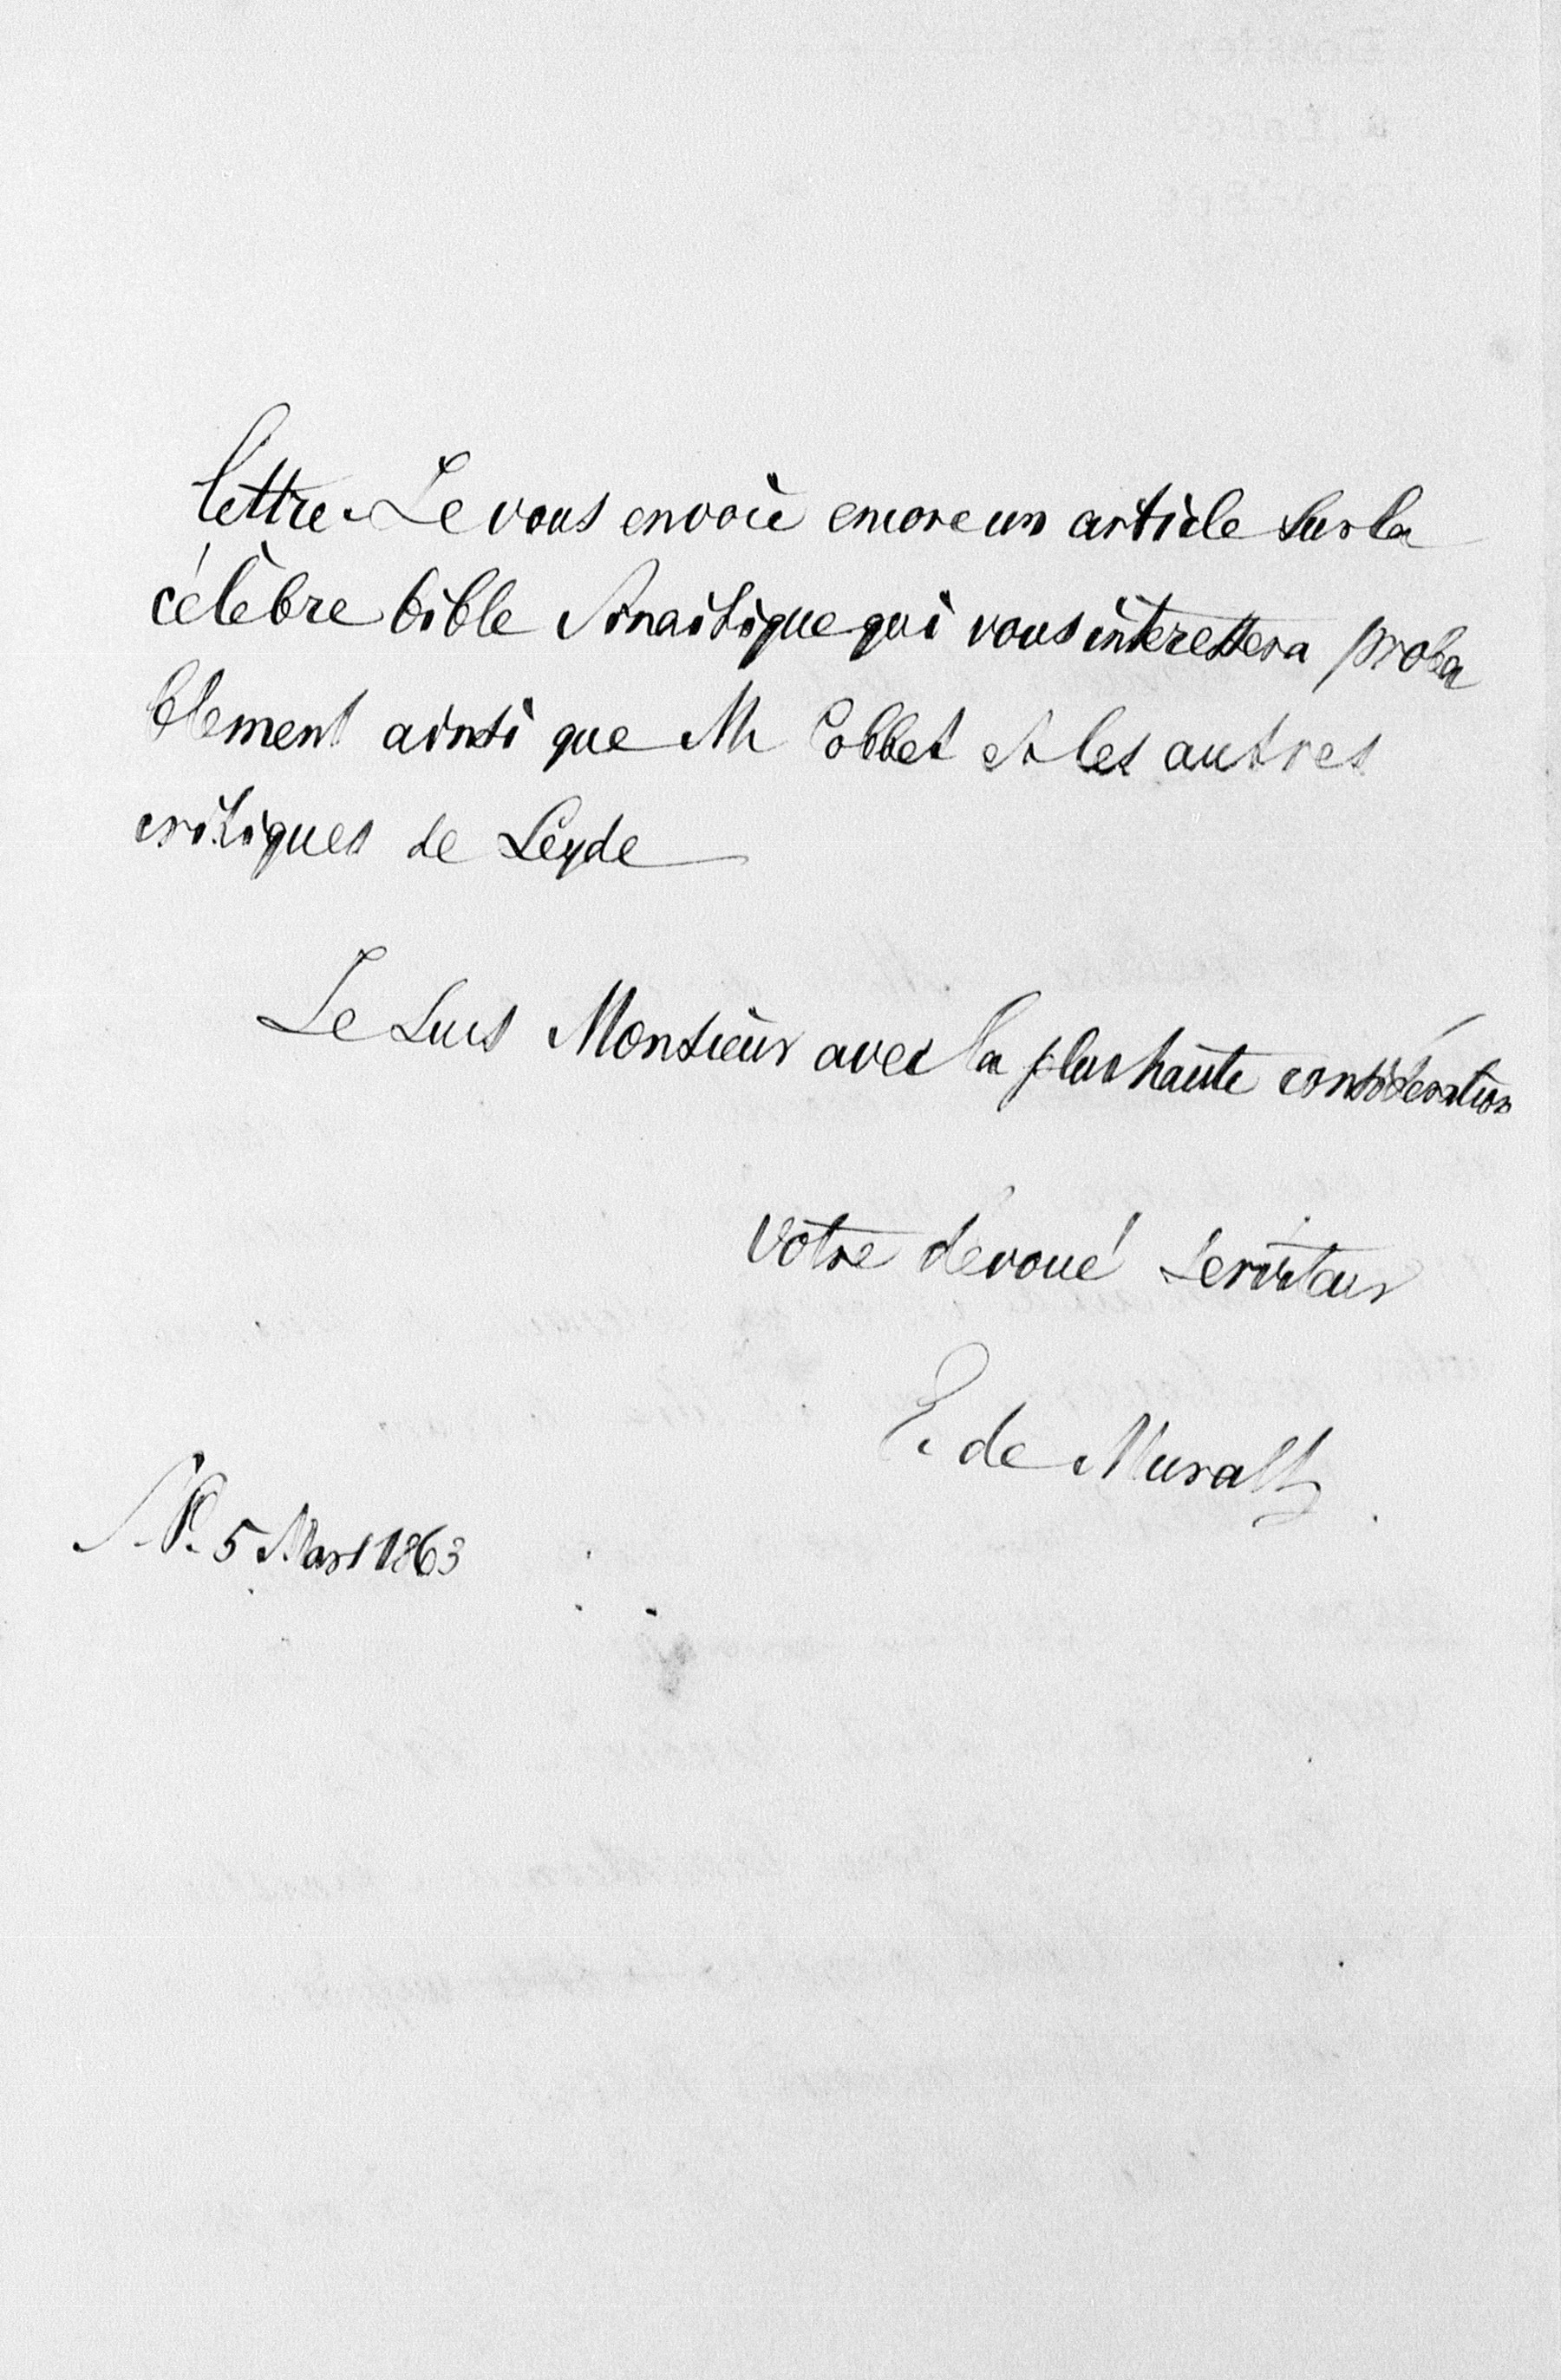 lettre. Je vous envoie encore un article sur la
célèbre bible Sinaitique qui vous interessera proba
blement ainsi que M Cobbet et les autres
critiques de Leyde
Je suis Monsieur avec la plus haute considération
Votre dévoué serviteur
E. de Muralt
S.P. 5 Mars 1863